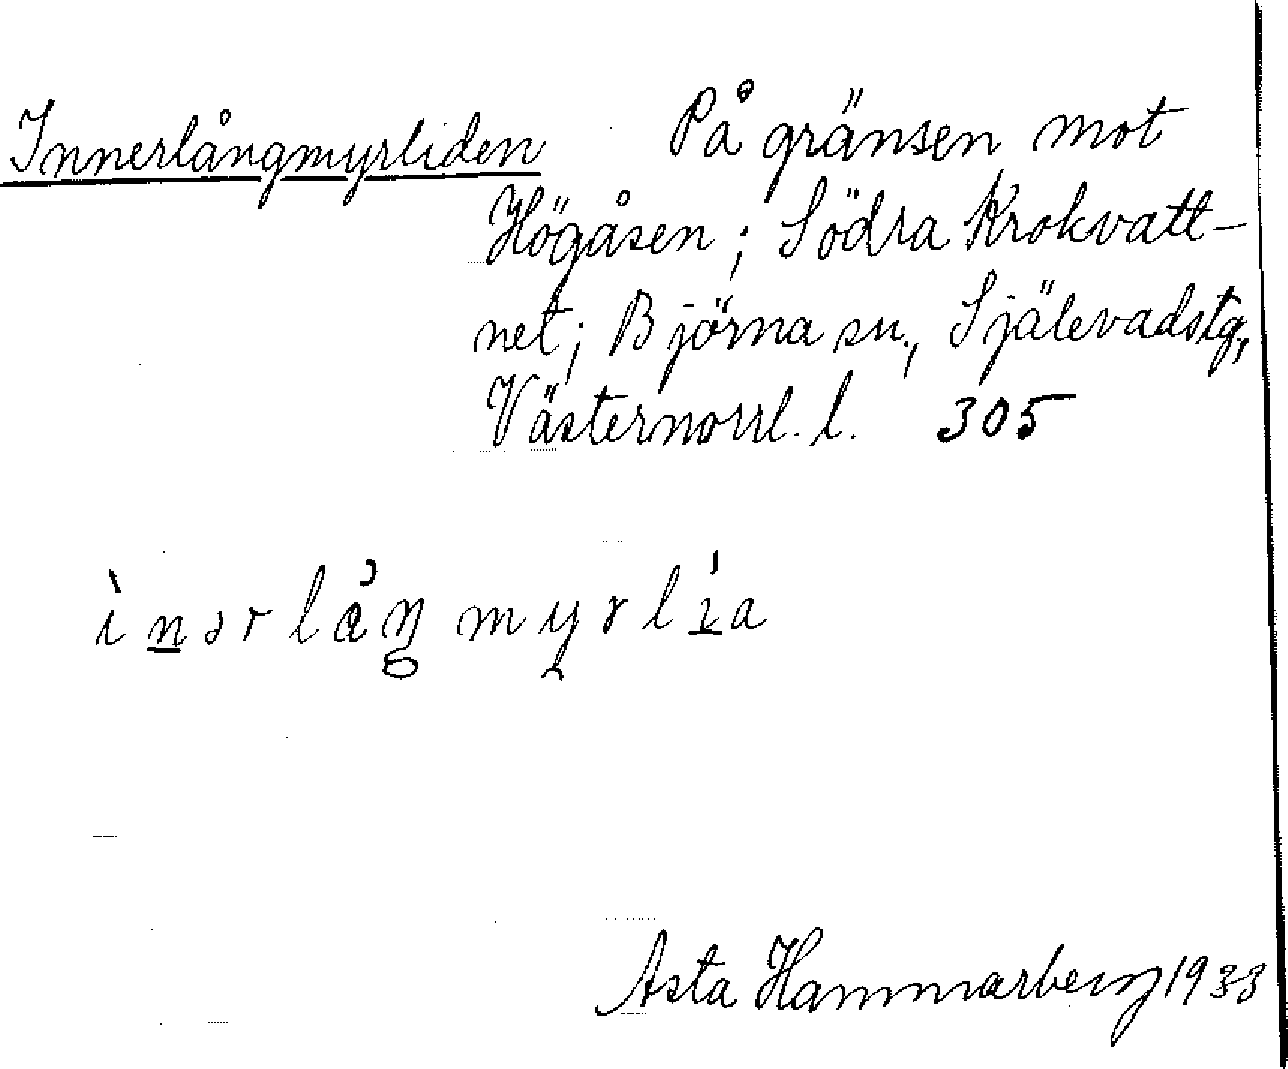 Innerlångmyrliden På gränsen mot
Högåsen; Södra Krokvatt-
net; Björna sn., Själevadstg,
Västernorrl. l. 305
ìnərlåŋmyrlía
Asta Hammarberg 1933